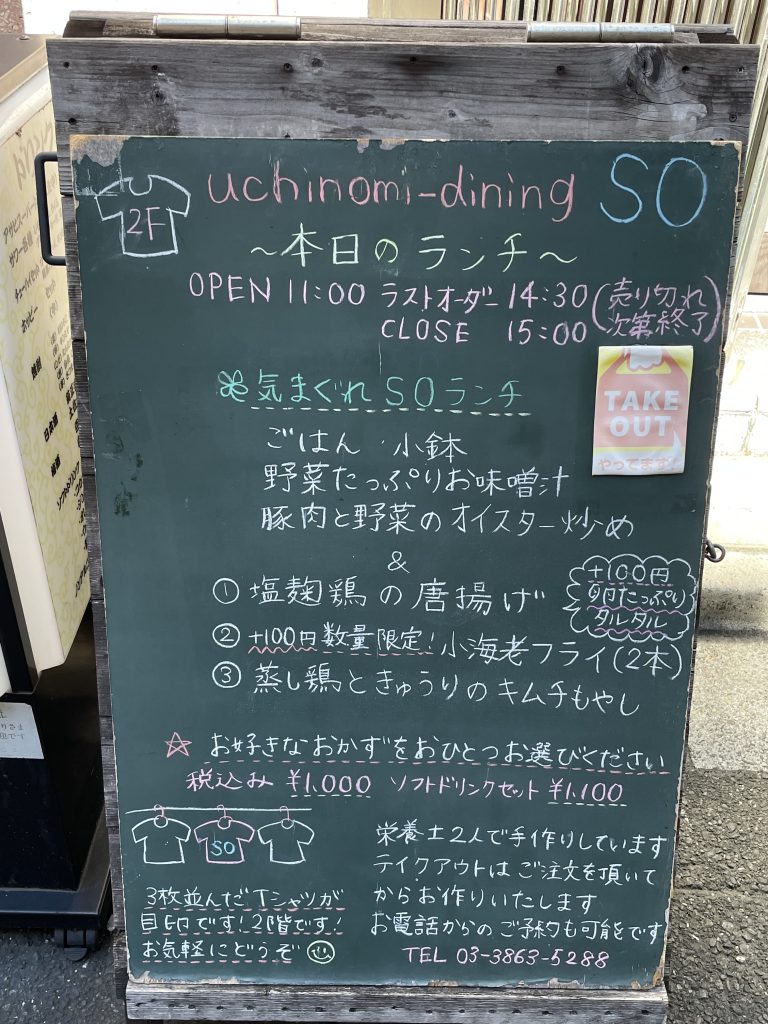 2F
uchinomi-dining SO
～本日のランチ～
OPEN 11:00 ラストオーダー 14:30 (売り切れ次第終了)
CLOSE 15:00
気まぐれSOランチ
TAKE
OUT
やってます!
ごはん・小鉢
野菜たっぷりお味噌汁
豚肉と野菜のオイスター炒め
&
① 塩麹鶏の唐揚げ
+100円
卵たっぷり
タルタル
② +100円数量限定!小海老フライ(2本)
③ 蒸し鶏ときゅうりのキムチもやし
☆ お好きなおかずをおひとつお選びください
税込み ¥1,000 ソフトドリンクセット ¥1,100
SO
3枚並んだTシャツが
目印です!2階です!
お気軽にどうぞ
栄養士2人で手作りしています
テイクアウトはご注文を頂いて
からお作りいたします
お電話からのご予約も可能です
TEL 03-3863-5288